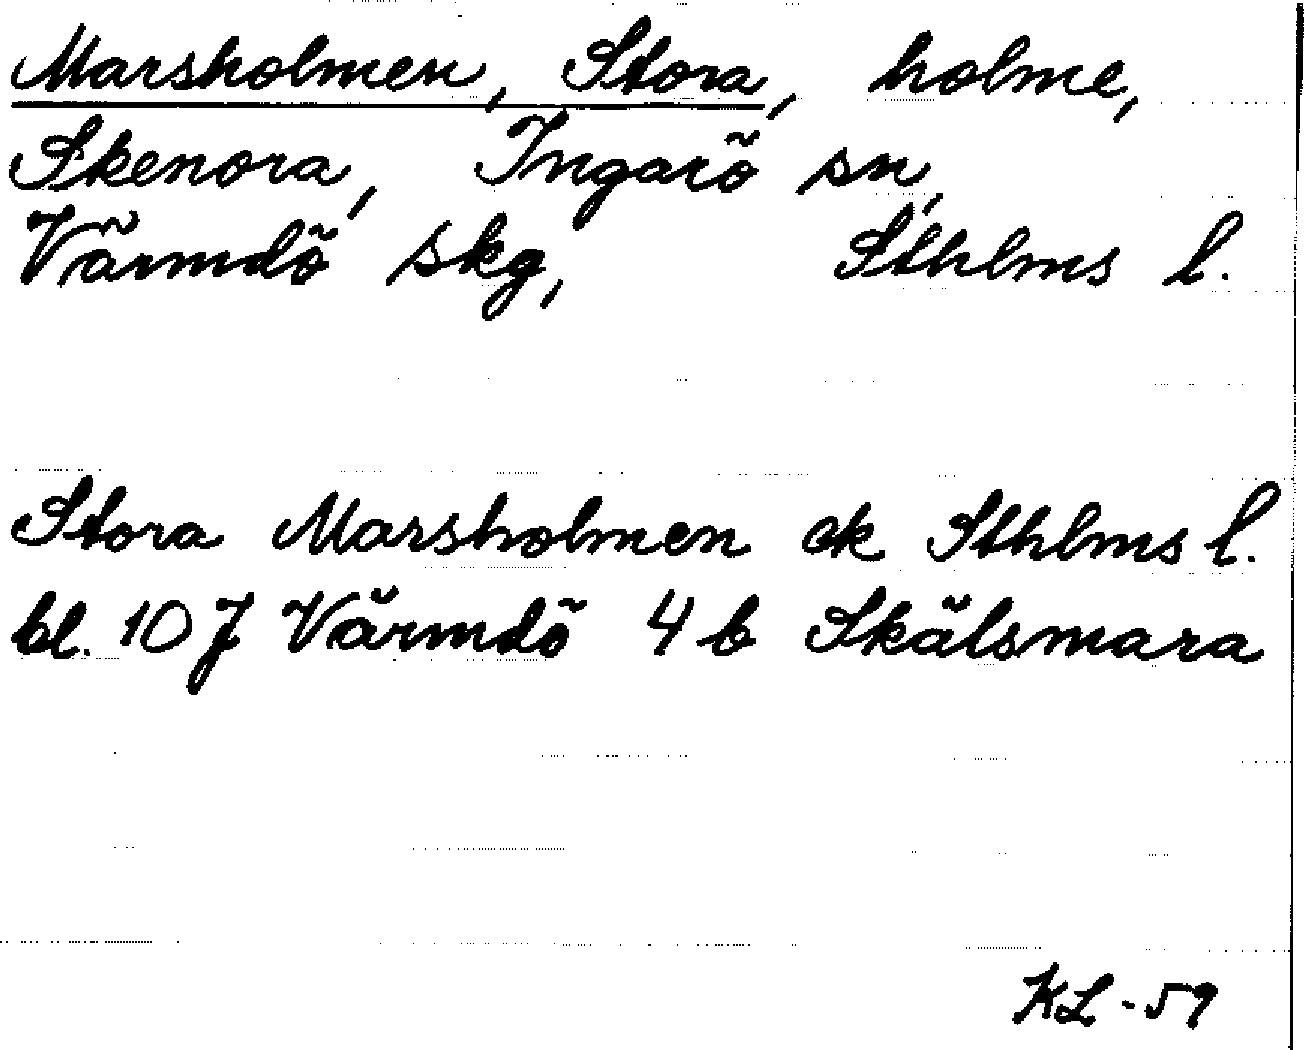 Marsholmen, Stora, holme,
Skenora, Ingarö sn,
Värmdö skg, Sthlms l.
Stora Marsholmen ek Sthlms l.
bl. 10 J Värmdö 4 b Skälsmara
KL -59